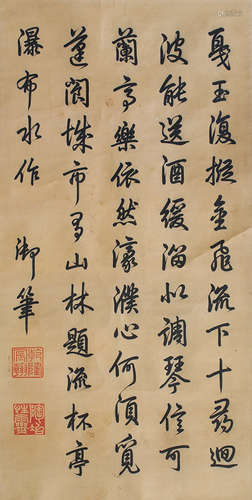 戛玉復摐金飛流下十尋迴
波能送酒緩溜 調琴信可
蘭亭樂依然濠濮心何須覓
蓬閬城市有山林題流杯亭
瀑布水作
御筆